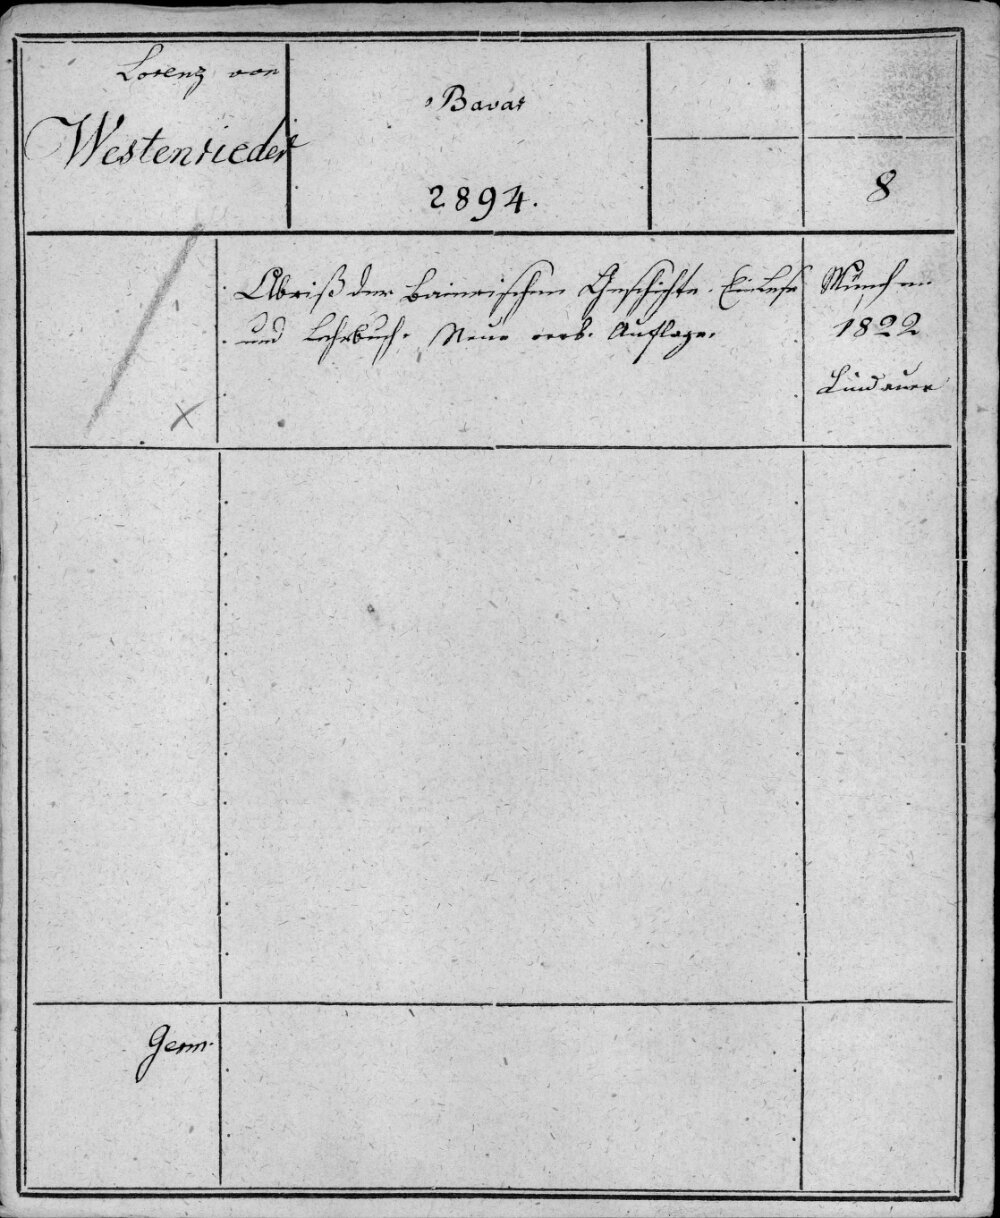 Lorenz von
Westenrieder
Bavar
2894.
8
Abriß der baierischen Geschichte. Ein Lese
und Lehrbuch. Neue verb. Auflage.
München
1822
Lindauer
Germ.